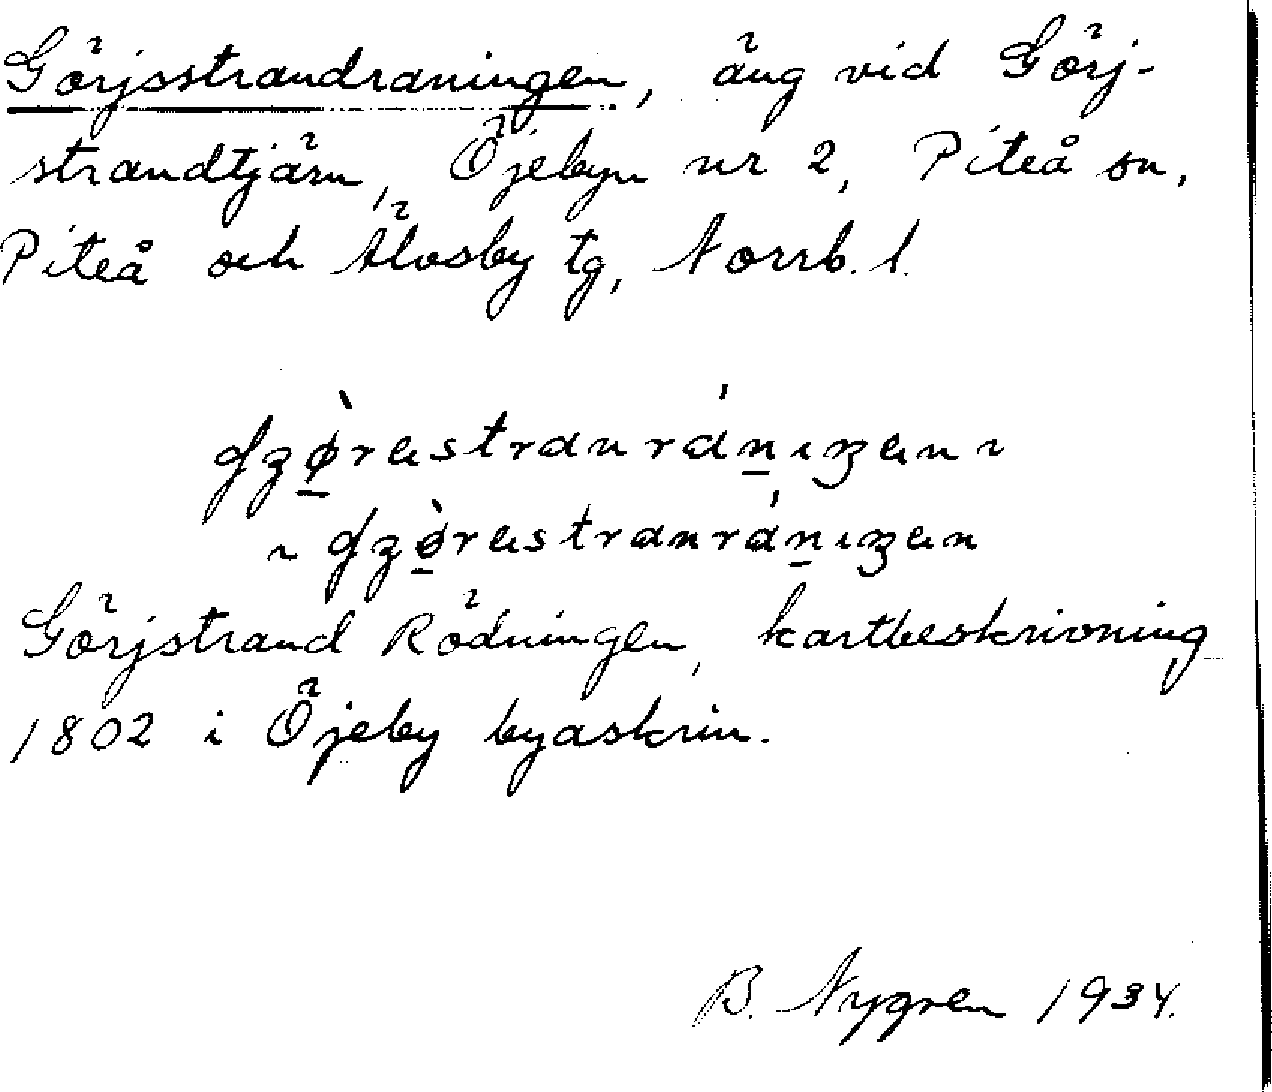 Görjsstrandraningen, äng vid Görj-
strandtjärn, Öjebyn nr 2, Piteå sn,
Piteå och Älvsby tg, Norrb. l.
Görjstrand Rödningen, kartbeskrivning
1802 i Öjeby byaskrin.
B. Nygren 1934.